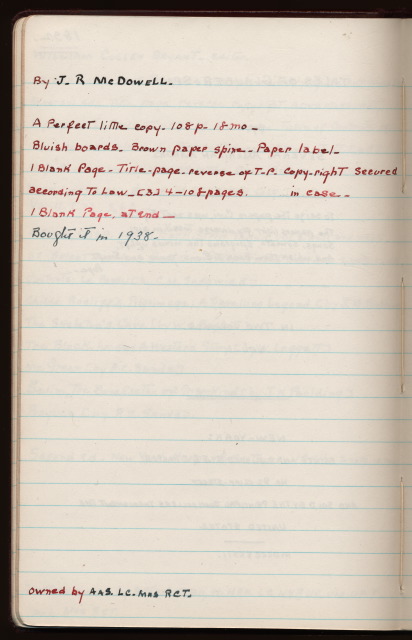 By J. R McDowell.
A Perfect little copy. 108p. 18mo -
Bluish boards. Brown paper spine. Paper label -
1 Blank Page - Title-page. reverse of T-P. Copy-right Secured
according To Law - [3] 4-108 pages. in case -
1 Blank Page, at end -
Bought it in 1938.
owned by AAS. LC. MHS RCT.